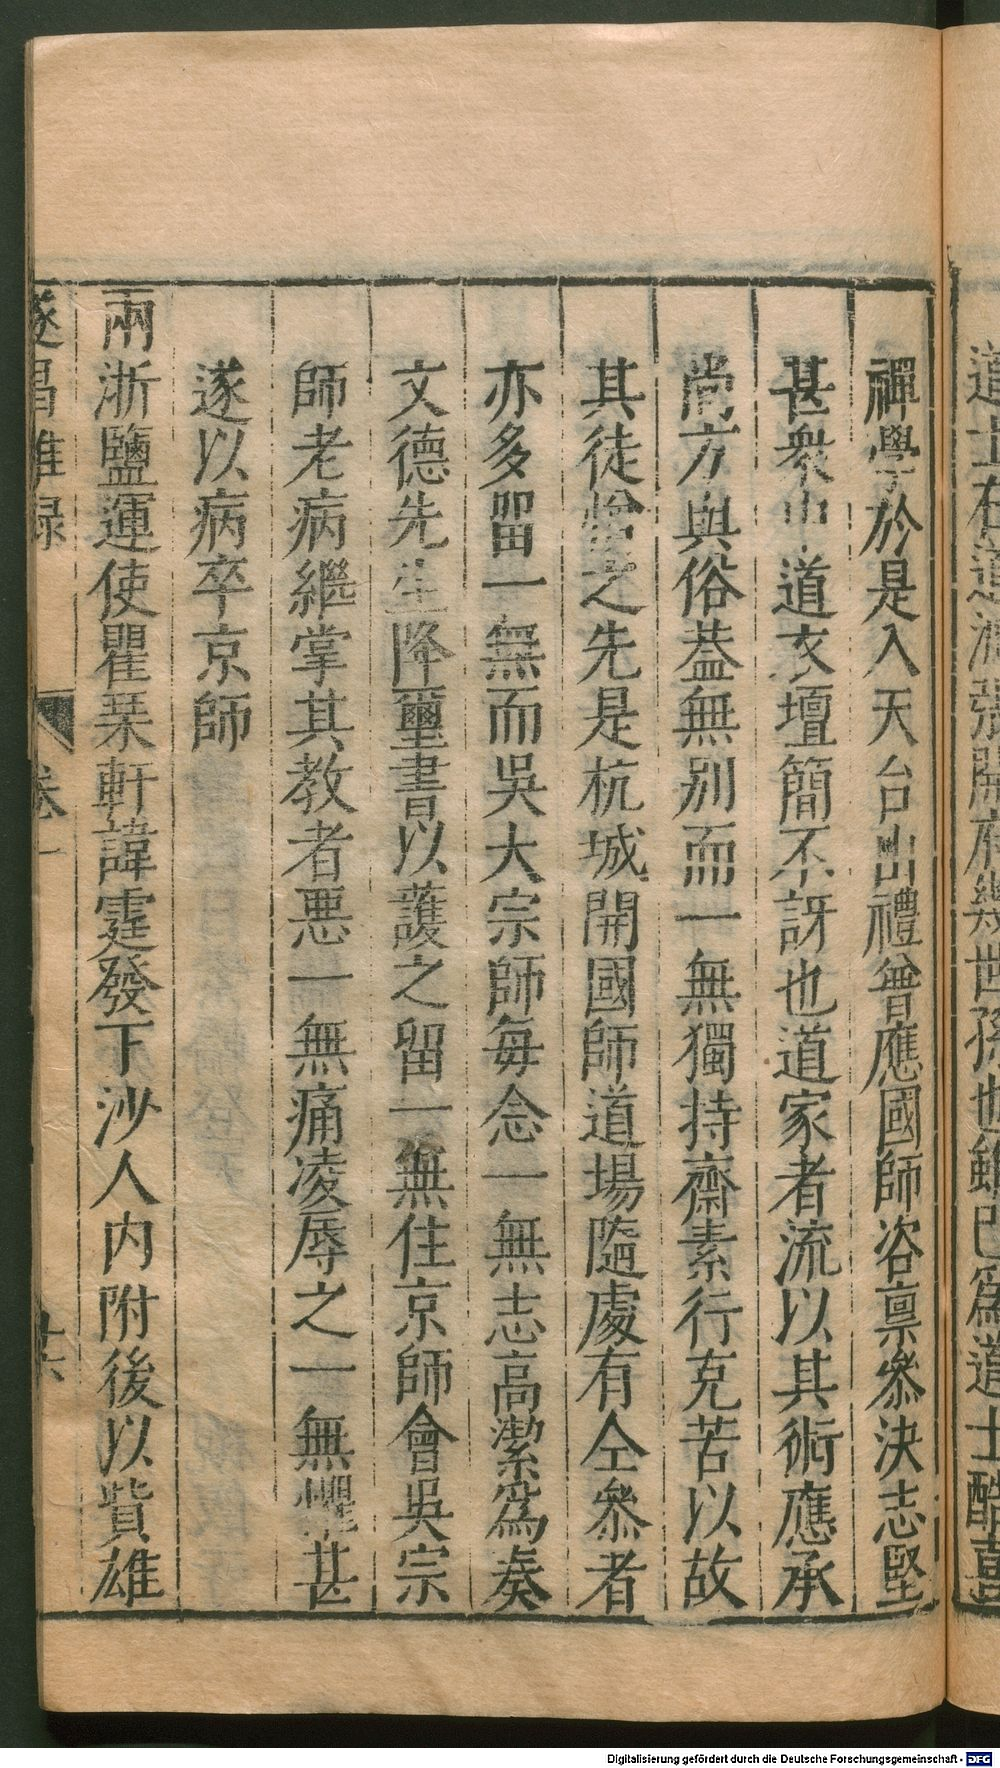 道士
張開府幾世孫也
爲道士酷喜
禪學於是入天台山禮曾應國師咨禀叅決志堅
甚衆中道衣壇簡不訝也道家者流以其術應承
尚方與俗葢無別而一無獨持齋素行克苦以故
其徒憎之先是杭城開國師道場隨處有仝叅者
亦多留一無而吳大宗師每念一無志高潔爲奏
文德先生降璽書以護之留一無住京師會吳宗
師老病繼掌其教者惡一無痛凌辱之一無懼甚
遂以病卒京師
兩浙鹽運使瞿某軒諱霆發下沙人内附後以貲雄
遂昌雜録
卷一
十六
Digitalisierung gefördert durch die Deutsche Forschungsgemeinschaft - DFG